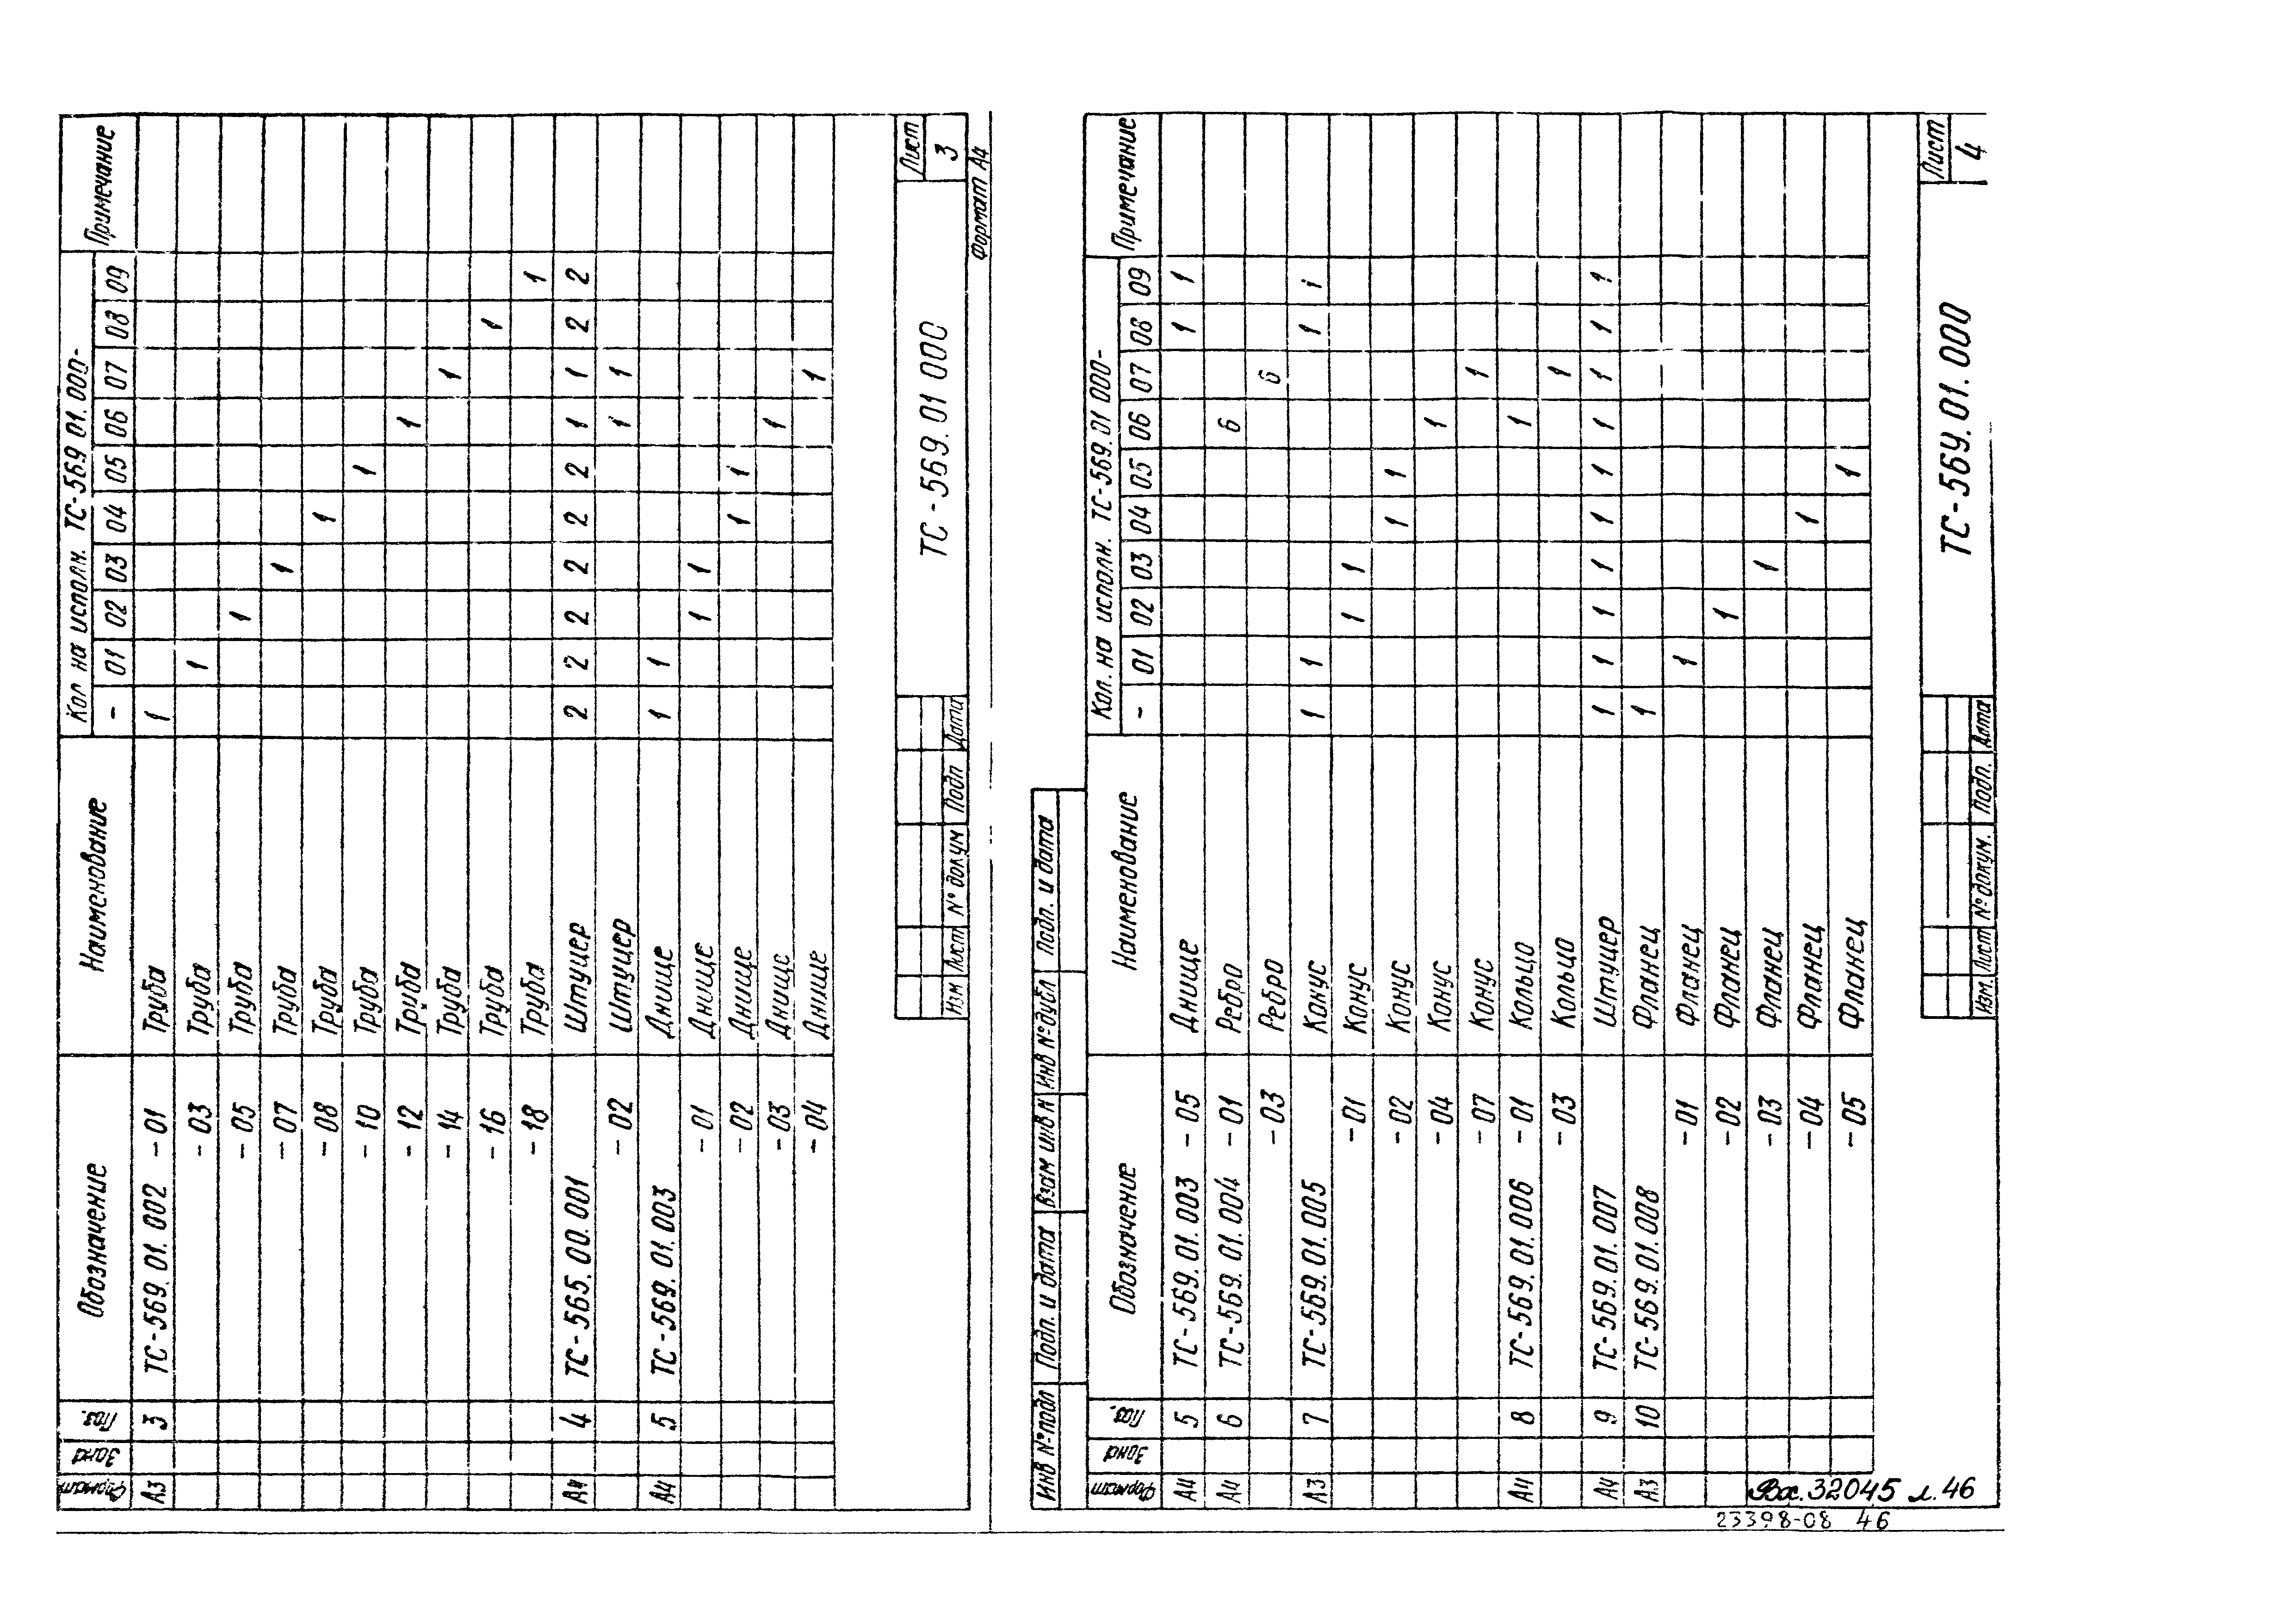 Формат Зона Поз. Обозначение Наименование Кол на исполн. ТС-569 01.000- Примечание
- 01 02 03 04 05 06 07 08 09
А3 3 ТС-569.01.002 -01 Труба 1
-03 Труба 1
-05 Труба 1
-07 Труба 1
-08 Труба 1
-10 Труба 1
-12 Труба 1
-14 Труба 1
-16 Труба 1
-18 Труба 1
А4 4 ТС-565.00.001 Штуцер 2 2 2 2 2 2 1 1 2 2
-02 Штуцер 1 1
А4 5 ТС-569.01.003 Днище 1 1
-01 Днище 1 1
-02 Днище 1 1
-03 Днище 1
-04 Днище 1
Изм Лист № докум Подп Дата
ТС-569.01 000
Лист
3
Формат А4
Инв № подл Подп. и дата Взам инв N Инв № дубл Подп. и дата
Формат Зона Поз. Обозначение Наименование Кол. на исполн. ТС-569.01 000- Примечание
- 01 02 03 04 05 06 07 08 09
А4 5 ТС-569.01.003 -05 Днище 1 1
А4 6 ТС-569.01.004 -01 Ребро 6
-03 Ребро 6
А3 7 ТС-569.01.005 Конус 1 1 1 1
-01 Конус 1 1
-02 Конус 1 1
-04 Конус 1
-07 Конус 1
А4 8 ТС-569.01.006 -01 Кольцо 1
-03 Кольцо 1
А4 9 ТС-569.01.007 Штуцер 1 1 1 1 1 1 1 1 1 1
А3 10 ТС-569.01.008 Фланец 1
-01 Фланец 1
-02 Фланец 1
-03 Фланец 1
-04 Фланец 1
-05 Фланец 1
Изм. Лист № докум. Подп. Дата
ТС-569.01.000
Лист
4
Вх. 32045 л. 46
23398-08 46